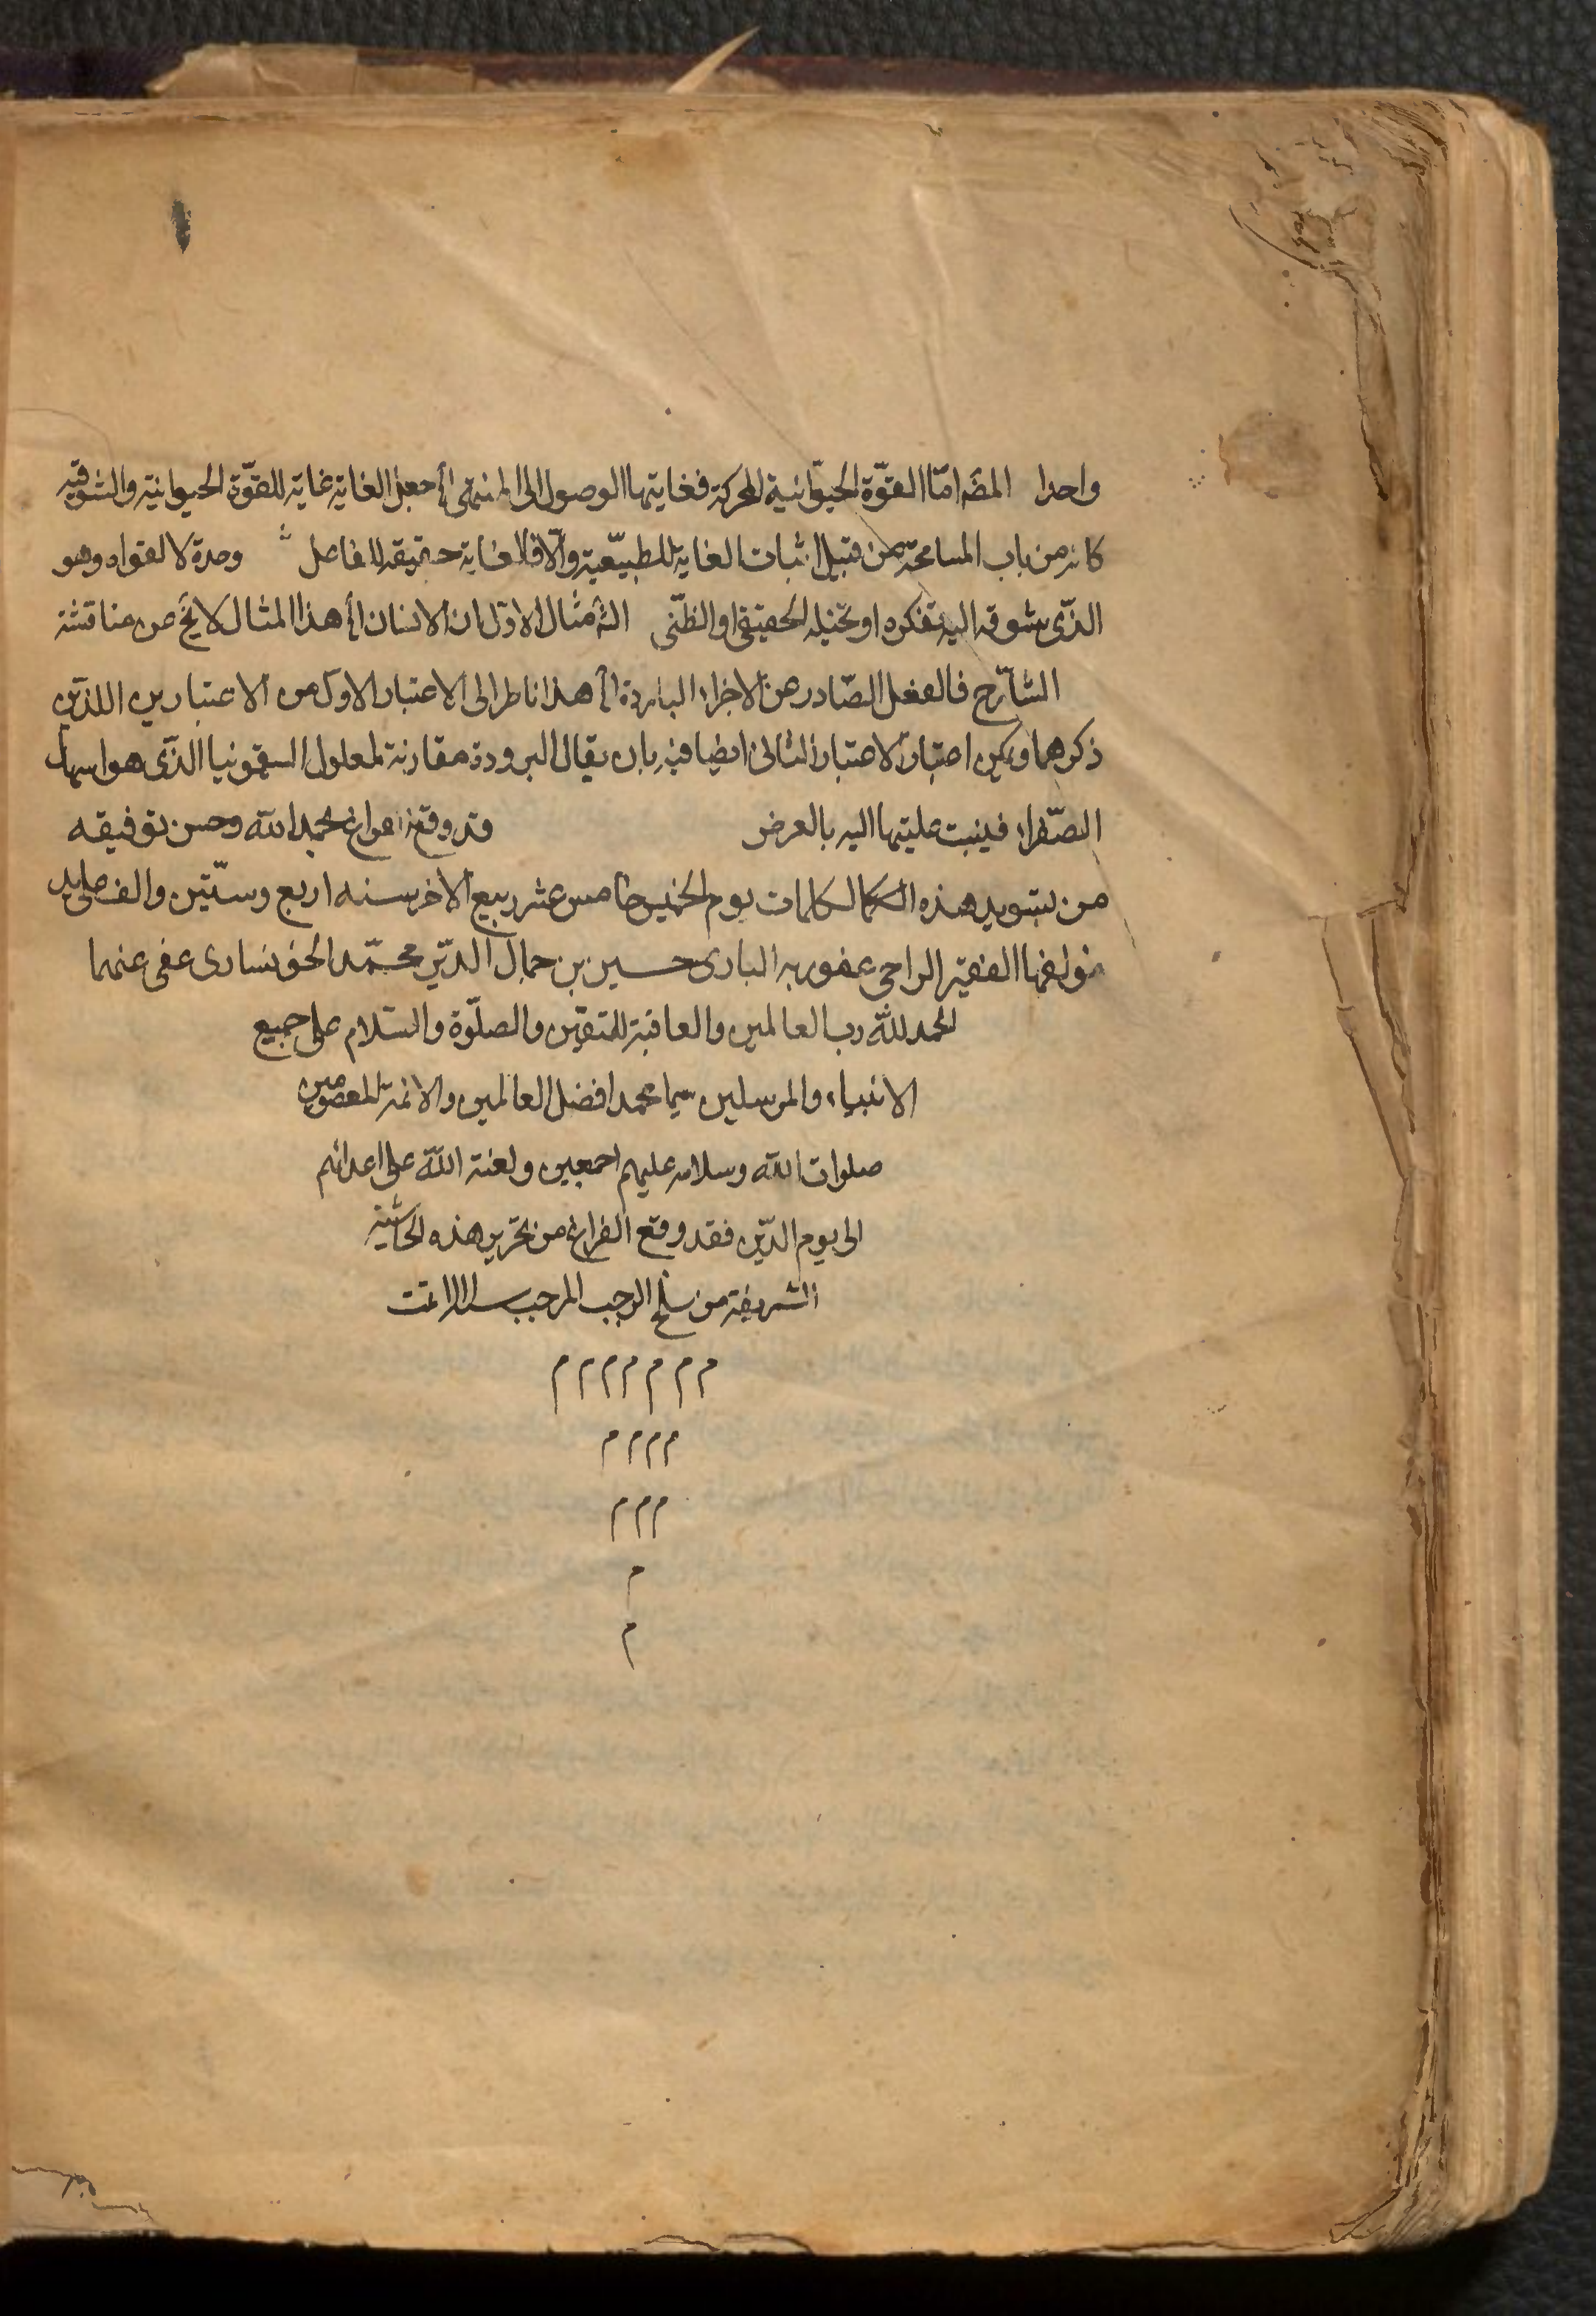 واحدا المص اما القوة الحيوانية المحركة فغايتها الوصول الى المنتهى أ جعل الغاية غاية للقوة الحيوانية والشوقية
كانه من باب المسامحة من قبيل اثبات الغاية للطبيعية والا فالغاية حقيقة للفاعل ش وحده لا لقواه وهو
الذى شوقه اليه تفكره او تخيله الحقيقى او الظنى الش مثال الاول ان الانسان أ هذا المثال لا يخ من مناقشة
الشارح فالفعل الصادر من الاجزاء الباردة أ هذا ناظر الى الاعتبار الاول من الاعتبارين اللذين
ذكرهما ويمكن اعتبار الاعتبار الثانى ايضا فيه بان يقال البرودة مقارنة لمعلول السقمونيا الذى هو اسهال
الصفراء فينسب عليتها اليه بالعرض وقد وقع الفراغ بحمد الله وحسن توفيقه
من تسويد هذه الكلمات يوم الخميس خامس عشر ربيع الاخر سنه اربع وستين والف على يد
مؤلفها الفقير الراجى عفو ربه البارى حسين بن جمال الدين محمد الخونسارى عفى عنهما
الحمد لله رب العالمين والعاقبة للمتقين والصلوة والسلام على جميع
الانبياء والمرسلين سيما محمد افضل العالمين والائمة المعصومين
صلوات الله وسلامه عليهم اجمعين ولعنة الله على اعدائهم
الى يوم الدين فقد وقع الفراغ من تحرير هذه الحاشية
الشريفة من سلخ الرجب المرجب تمت
م م م م م م م
م م م م
م م م
م
م